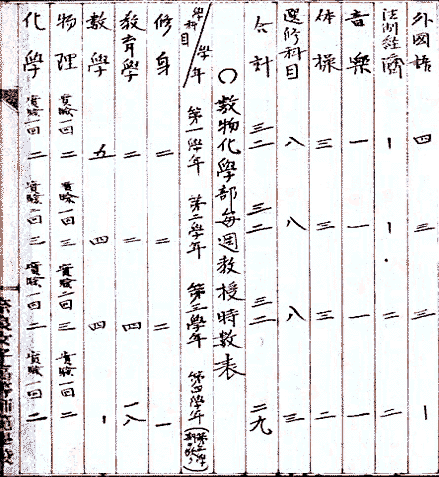 外國語 四 三 三 ｜
法制経濟 ｜ ｜ 二 二
音樂 一 一 一 一
体操 三 三 三 二
選修科目 八 八 八 三
合計 三二 三二 三二 二九
○數物化學部每週教授時數表
學科目／學年 第一學年 第二學年 第三學年 第四學年
修身 二 二 二 一
教育學 二 二 四 一八
數學 五 四 四 ｜
物理 實驗一回 二 實驗一回 三 實驗二回 三 實驗一回 二
化學 實驗一回 二 實驗一回 三 實驗一回 二 實驗一回 二
奈良女子高等師範學校